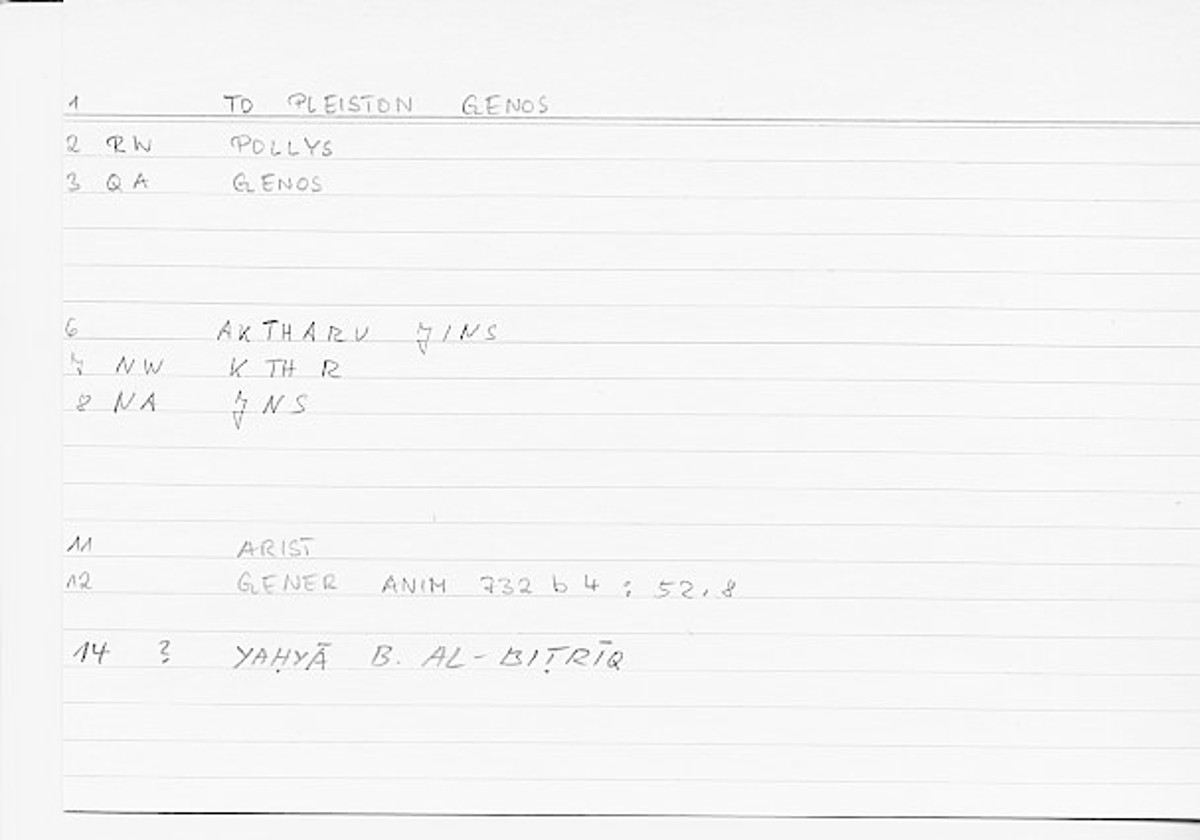 1 TO PLEISTON GENOS
2 RW POLLYS
3 QA GENOS
6 AKTHARU J̌INS
7 NW K TH R
8 NA J̌NS
11 ARIST
12 GENER ANIM 732 b 4 ; 52,8
14 ? YAḤYĀ B. AL-BIṬRĪQ